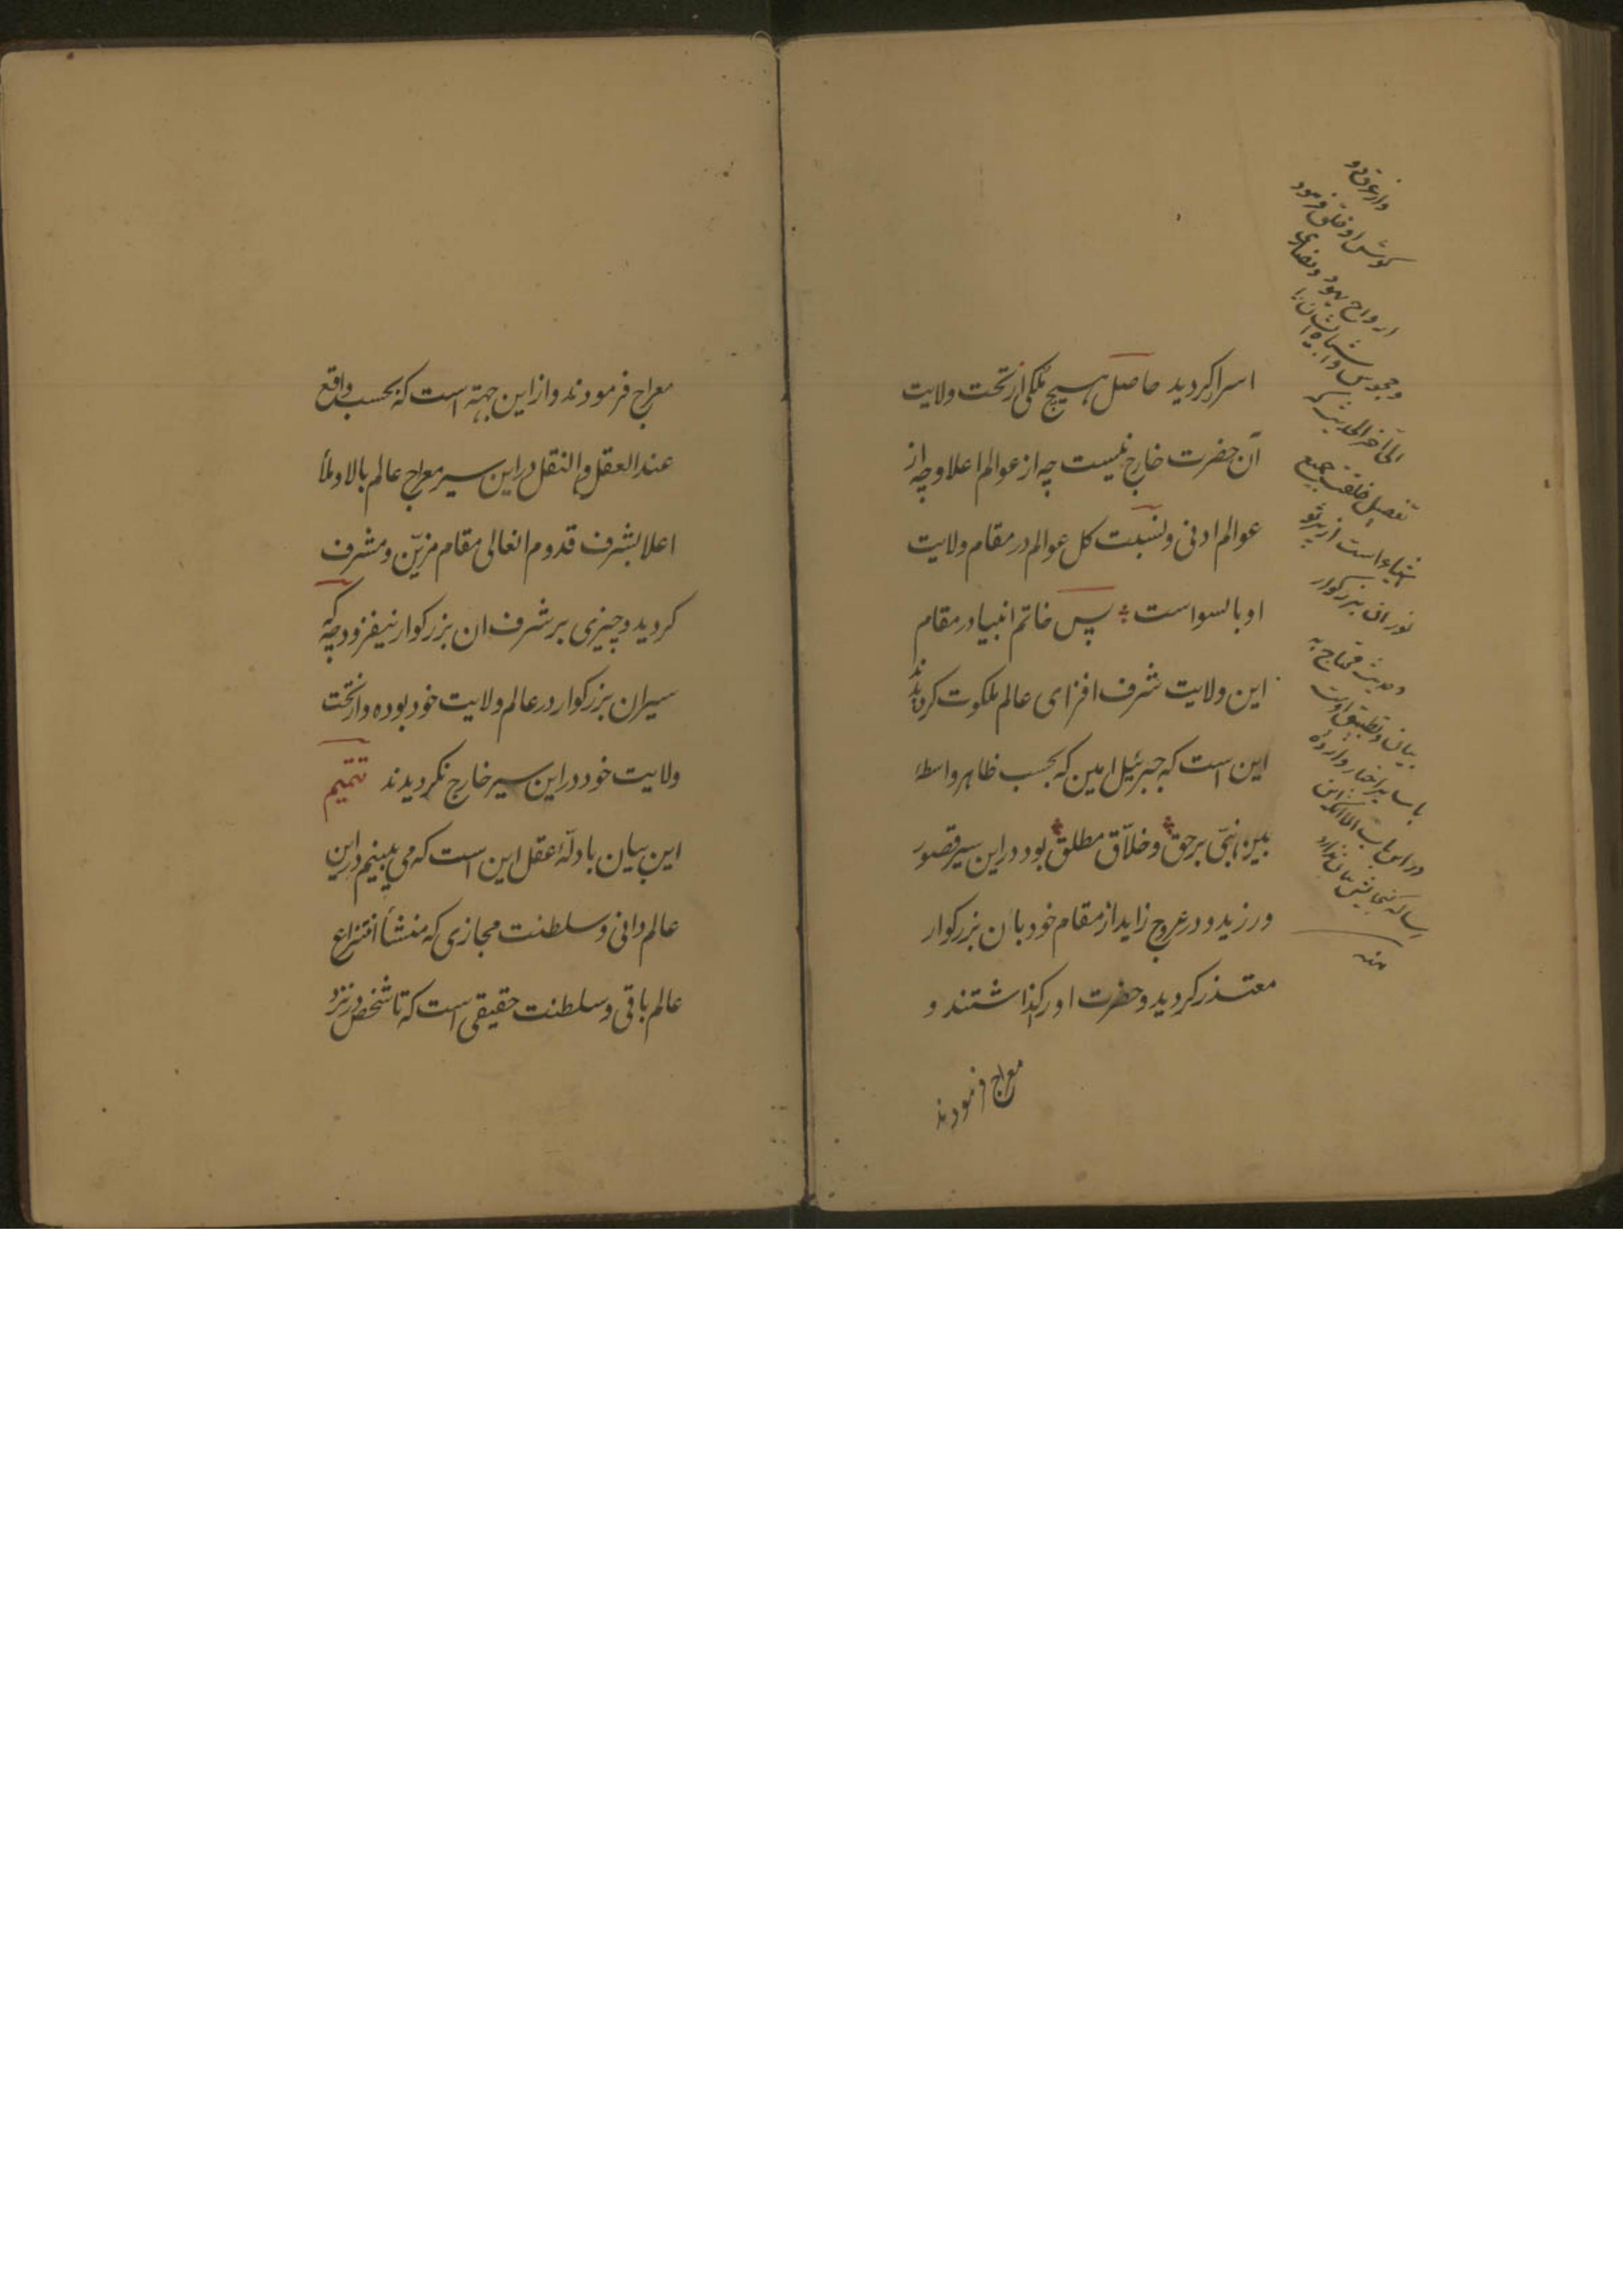 اسرا کردید حاصل هیچ ملکی از تحت ولایت
آن حضرت خارج نیست چه از عوالم اعلا و چه از
عوالم ادنی و نسبت کل عوالم در مقام ولایت
او بالسوا است پس خاتم انبیا در مقام
این ولایت شرف افزای عالم ملکوت کردیدند
این است که جبرئیل امین که بحسب ظاهر واسطهٔ
بین نبّی برحق و خلّاق مطلق بود در این سیر قصور
ورزید و در عروج زاید از مقام خود بان بزرکوار
معتذر کردید و حضرت او را کذاشتند و
معراج فرمودند
و از عرق دو
کوش او خلق فرمود
ارواح یهود و نصاری
و مجوس و اشباه ایشان را
الی آخر الحدیث که
تفصیل خلقت جمیع
اشیاء است از پرتو
نور ان بزرکوار
و حدیث محتاج به
بیان و تطبیق است
با سایر اخبار وارده
در این باب الا انکه این
رساله کنجایش بیان ندارد
منه
معراج فرمودند و از این جهة است که بحسب واقع
عند العقل و النقل در این سیر معراج عالم بالا و ملأ
اعلا بشرف قدوم انعالی مقام مزیّن و مشرف
کردید و چیزی بر شرف ان بزرکوار نیفزود چه که
سیر ان بزرکوار در عالم ولایت خود بوده و از تحت
ولایت خود در این سیر خارج نکردیدند تتمیم
این بیان با دلّهٔ عقل این است که می بینیم در این
عالم دانی و سلطنت مجازی که منشأ انتزاع
عالم باقی و سلطنت حقیقی است که تا شخص در نزد